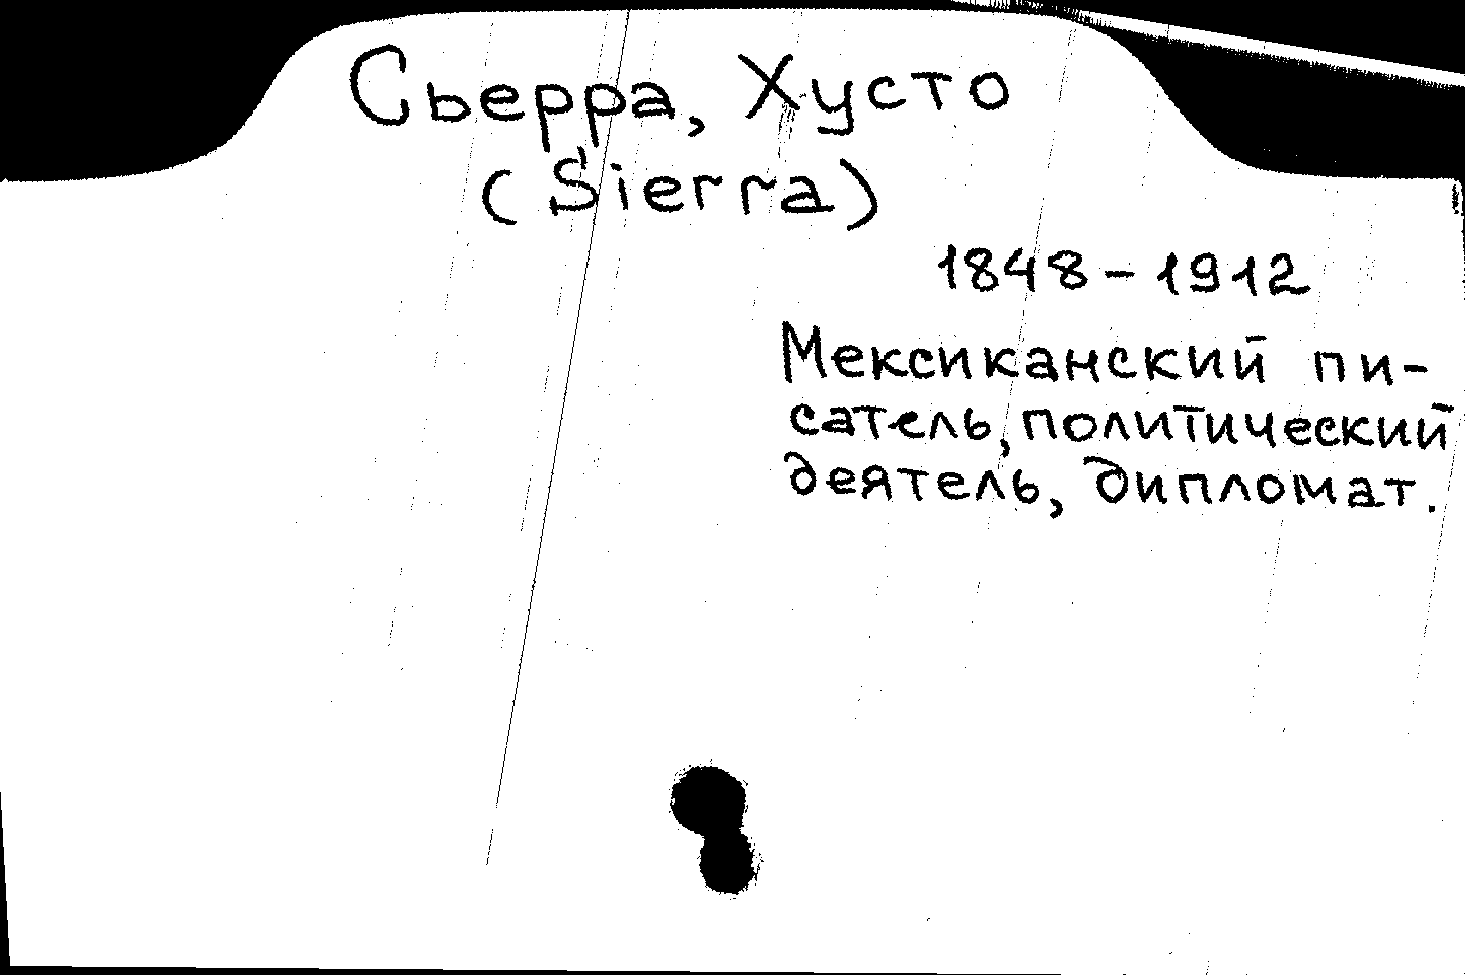 Сьерра, Хусто
(Sierra)
1848-1912
Мексиканский пи-
сатель, политический
деятель, дипломат.